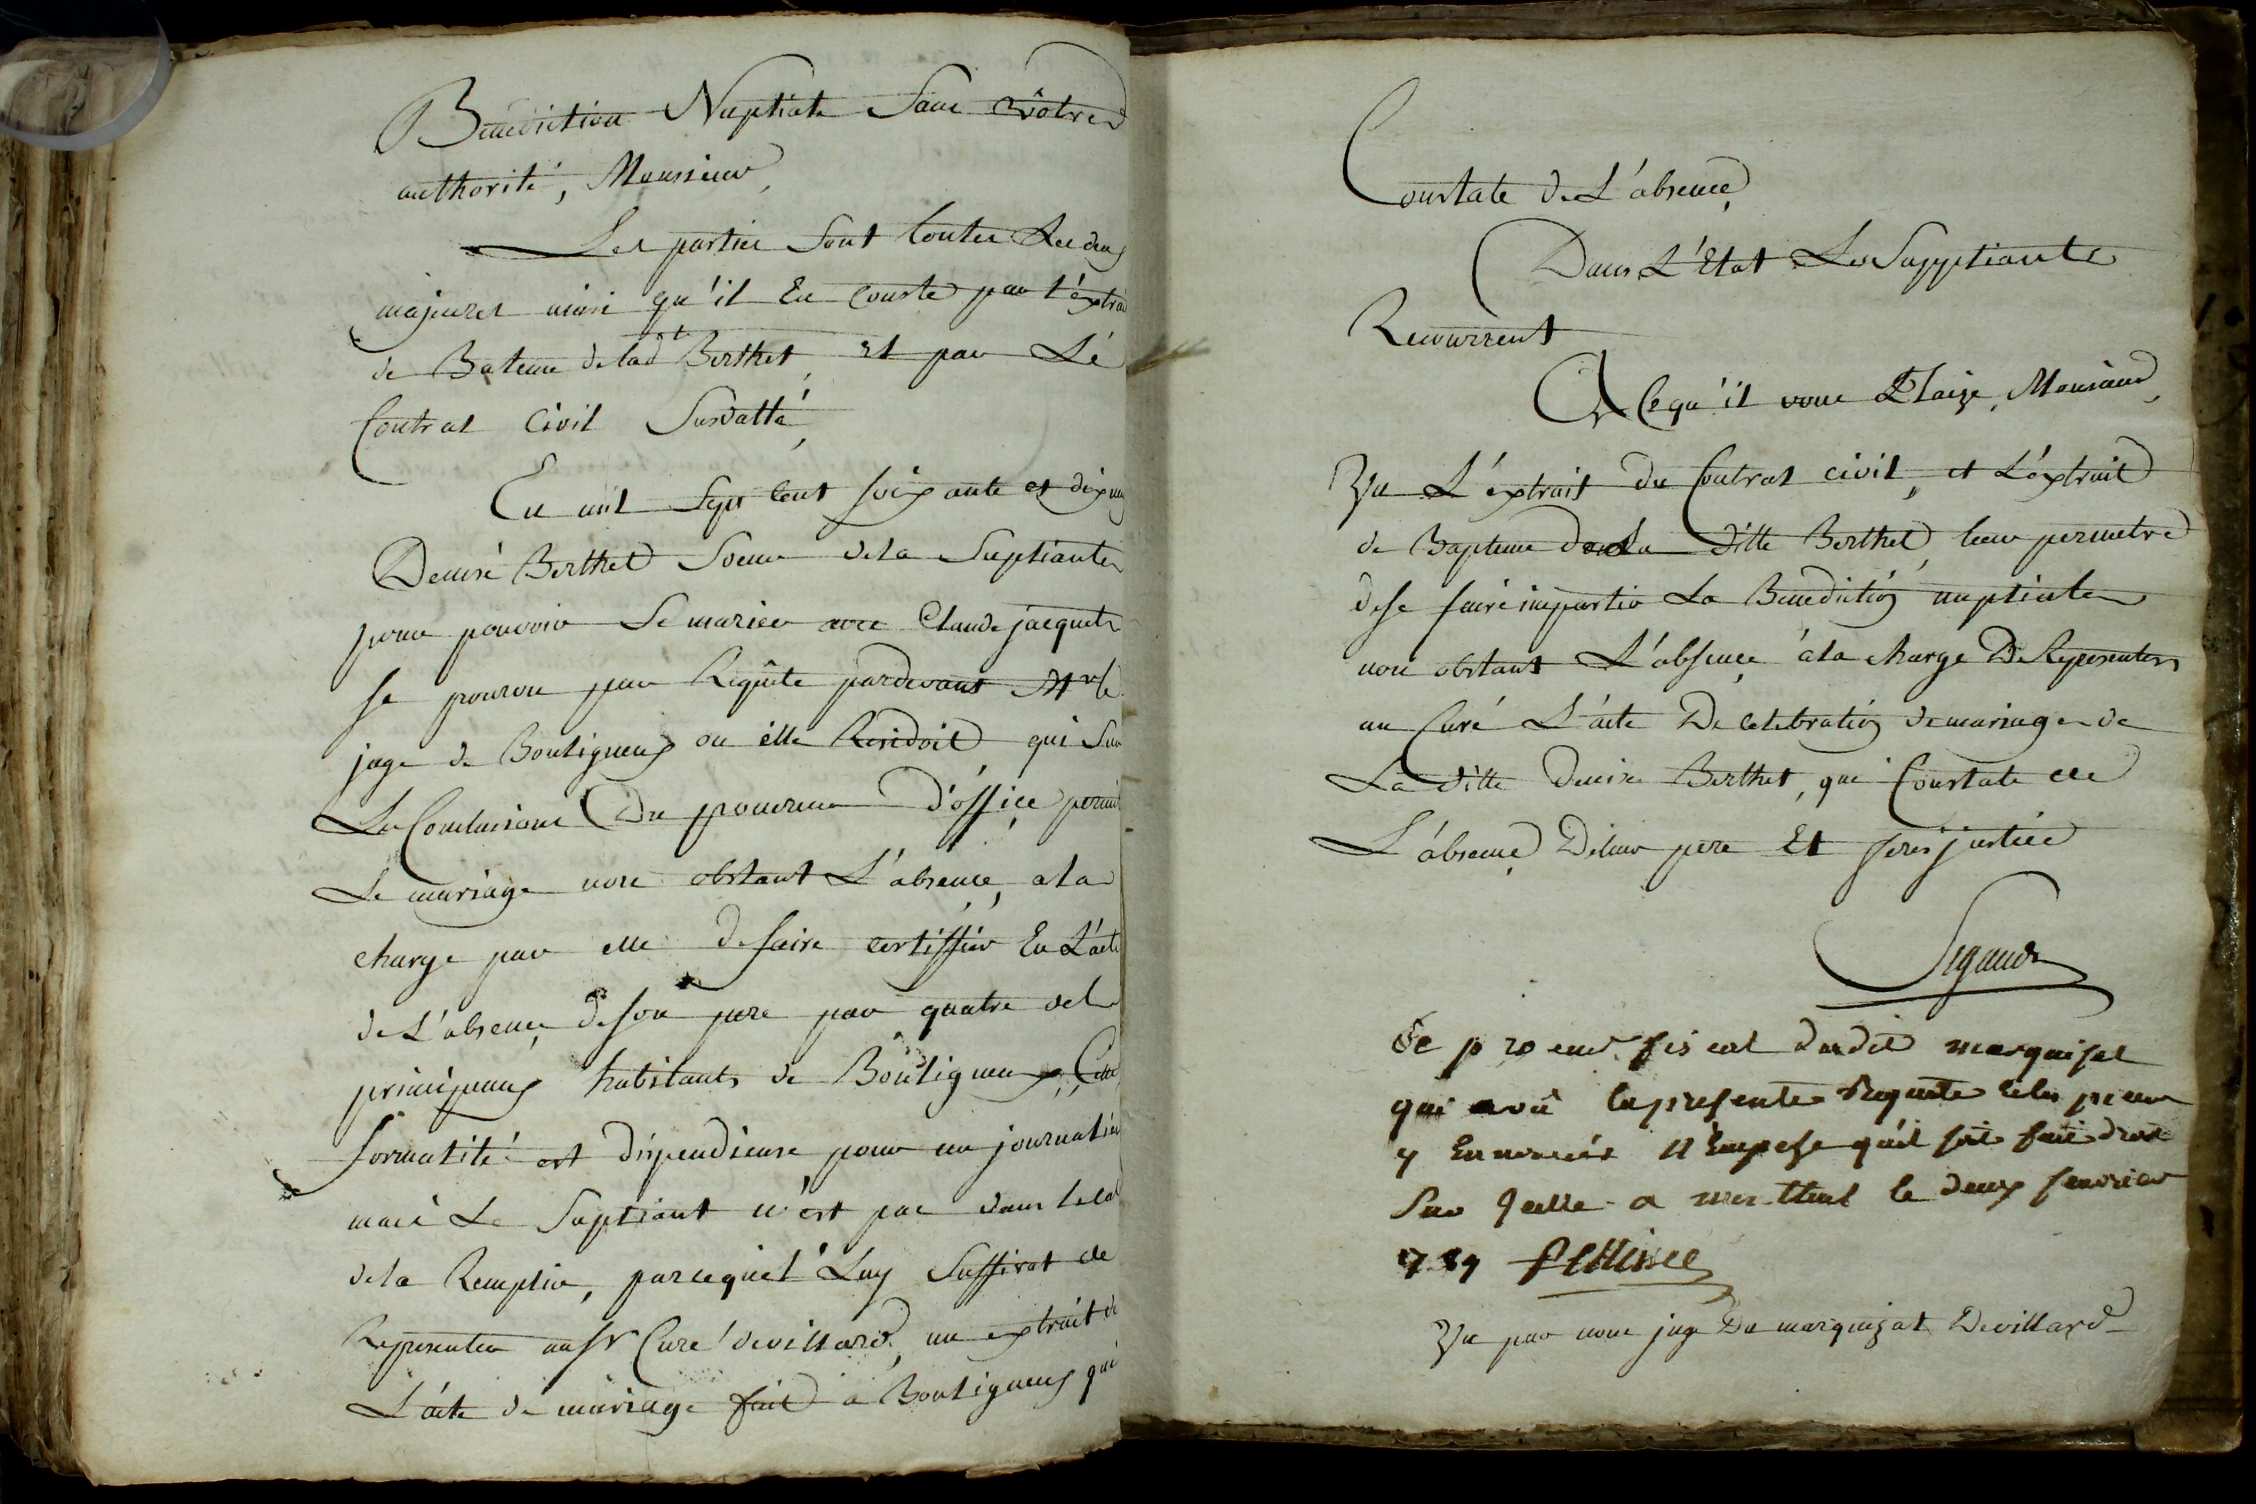 Benediction Nuptiale Sans vôtre
authorité, Monsieur,
Les parties Sont toutes Les deux
majeures ainsi qu'il En Conste par l'éxtrait
de Bateme de lad.te Berthet, et par Lé
Contrat Civil Susdatté,
En mil Sept Cent soixante et dix neuf
Denise Berthet Soeur de la Supliante
pour pouvoir Se marier avec Claude jacquet
se pourvu par Requête pardevant Mr le
juge de Bouligneux ou elle Residoit qui Sur
Les Conclusions Du procureur D'office permit
Le mariage non obstant L'absence, a la
charge par elle de faire certiffier En L'acte
de L'absence de son pere par quatre des
principaux habitants de Bouligneux, Cette
formalité est dispendieuse pour un journalier
mais Le Supliant n'est pas dans le cas
de la Remplir, parcequ'il Luy Suffirat de
Representer au Sr Curé de villard, un extrait de
L'acte de mariage fait a Bouligneux qui
Constate de L'absence,
Dans L'Etat Les Supptiants
Recourrent
A Ce qu'il vous Plaize, Monsieur,
Vu L'éxtrait du Contrat civil, et L'éxtrait
de Bapteme de La ditte Berthet, leur permetre
de se faire impartir La Benedictiõn nuptiale
non obstant L'absence, á la charge De Representer
au Curé L'acte De Celebratiõn de mariage de
La ditte Denise Berthet, qui Constate de
L'absence De leur pere Et ferés justice
Sigaud
Le procur. fiscal dudit marquisat
qui a vû la presente Requete et les pieces
y Ennoncées N'Empeche qu'il soit fait droit
Sur Icelle a le deux fevrier
789
Vu par nous juge Du marquizat De villard